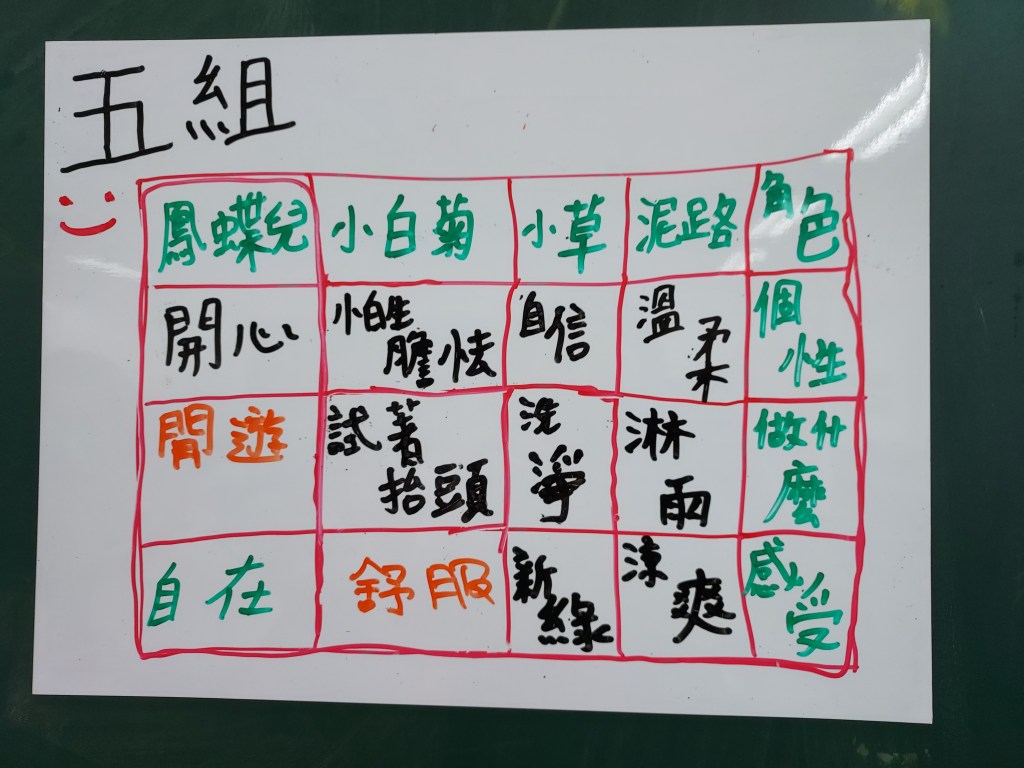 五組
鳳蝶兒 小白菊 小草 泥路 角色
開心 怕生膽怯 自信 溫柔 個性
閒遊 試著抬頭 洗淨 淋雨 做什麼
自在 舒服 新綠 涼爽 感受